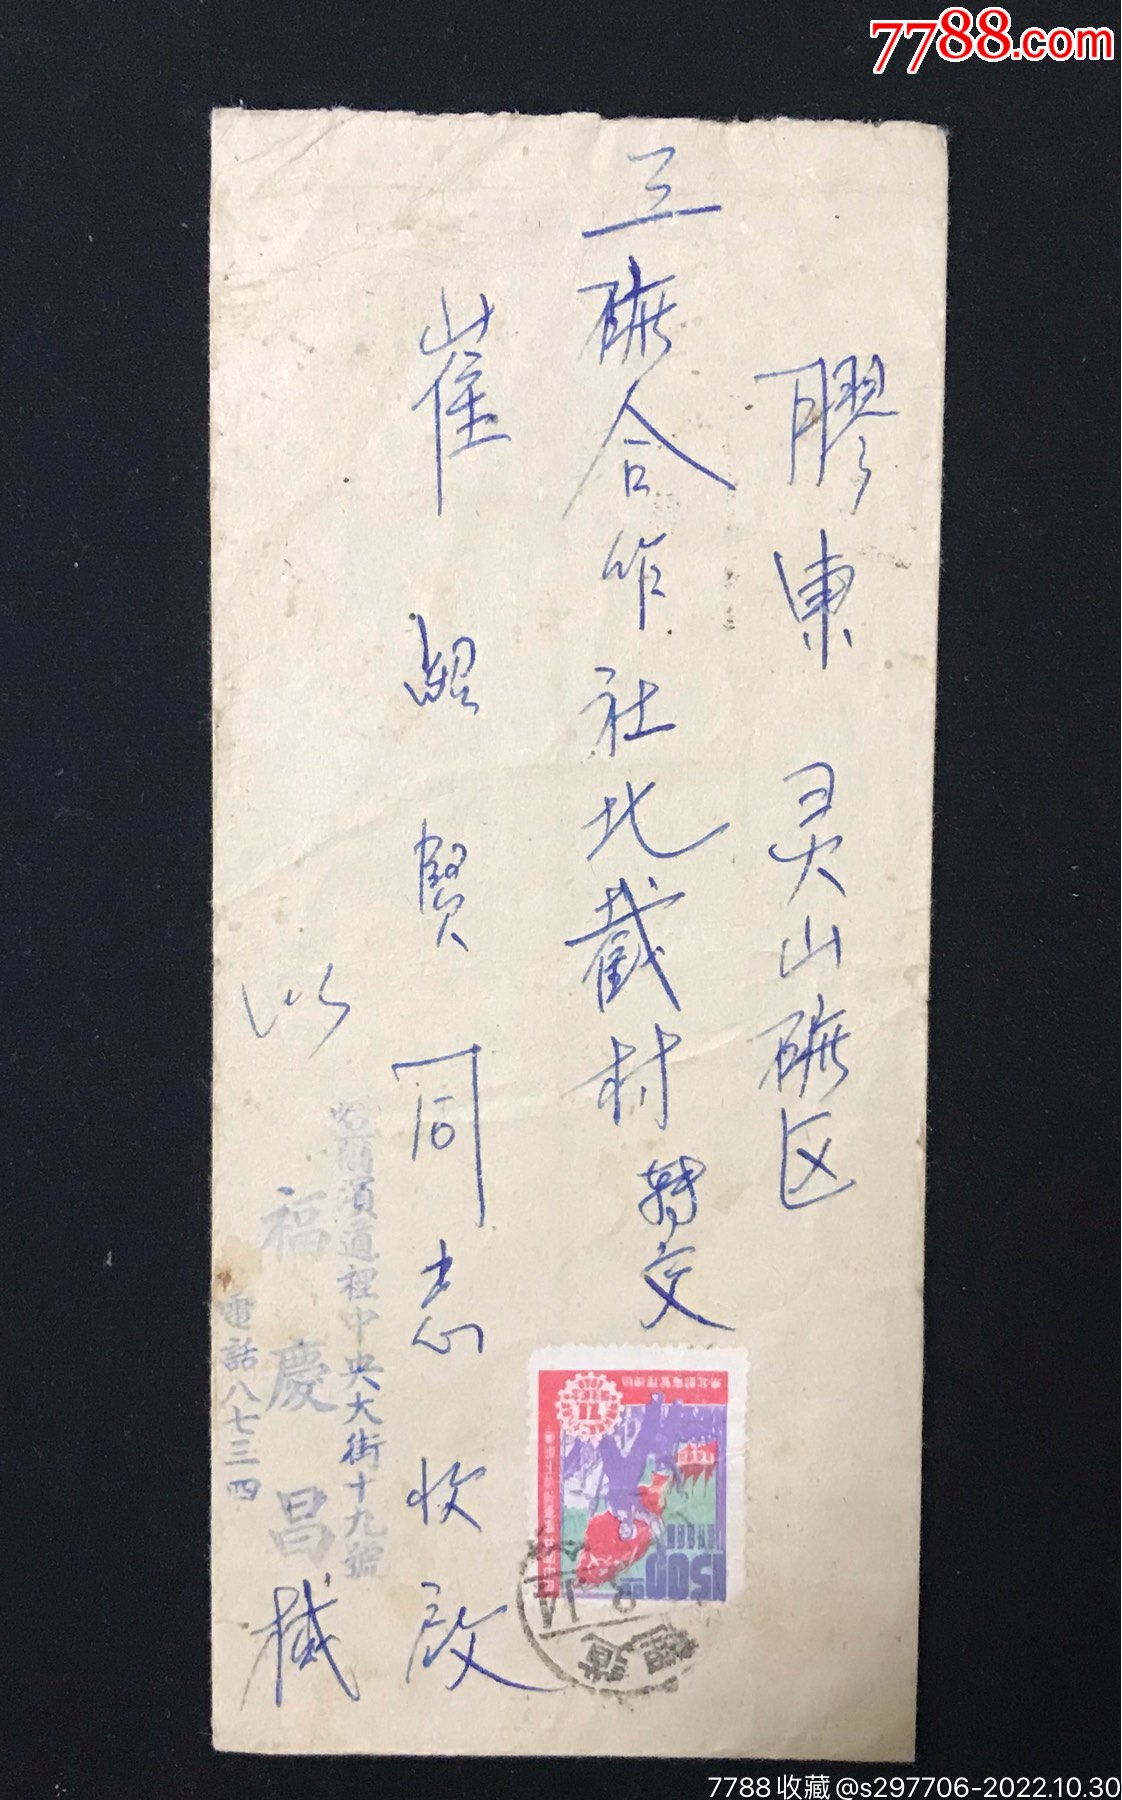 7788.com
膠東 灵山碾区
三碾合作社北截村 轉交
崔紹賢 同志 收啟
哈爾濱道裡中央大街十九號
福慶昌
電話八七三四
緘
1500
道裡
7788收藏@s297706-2022.10.30